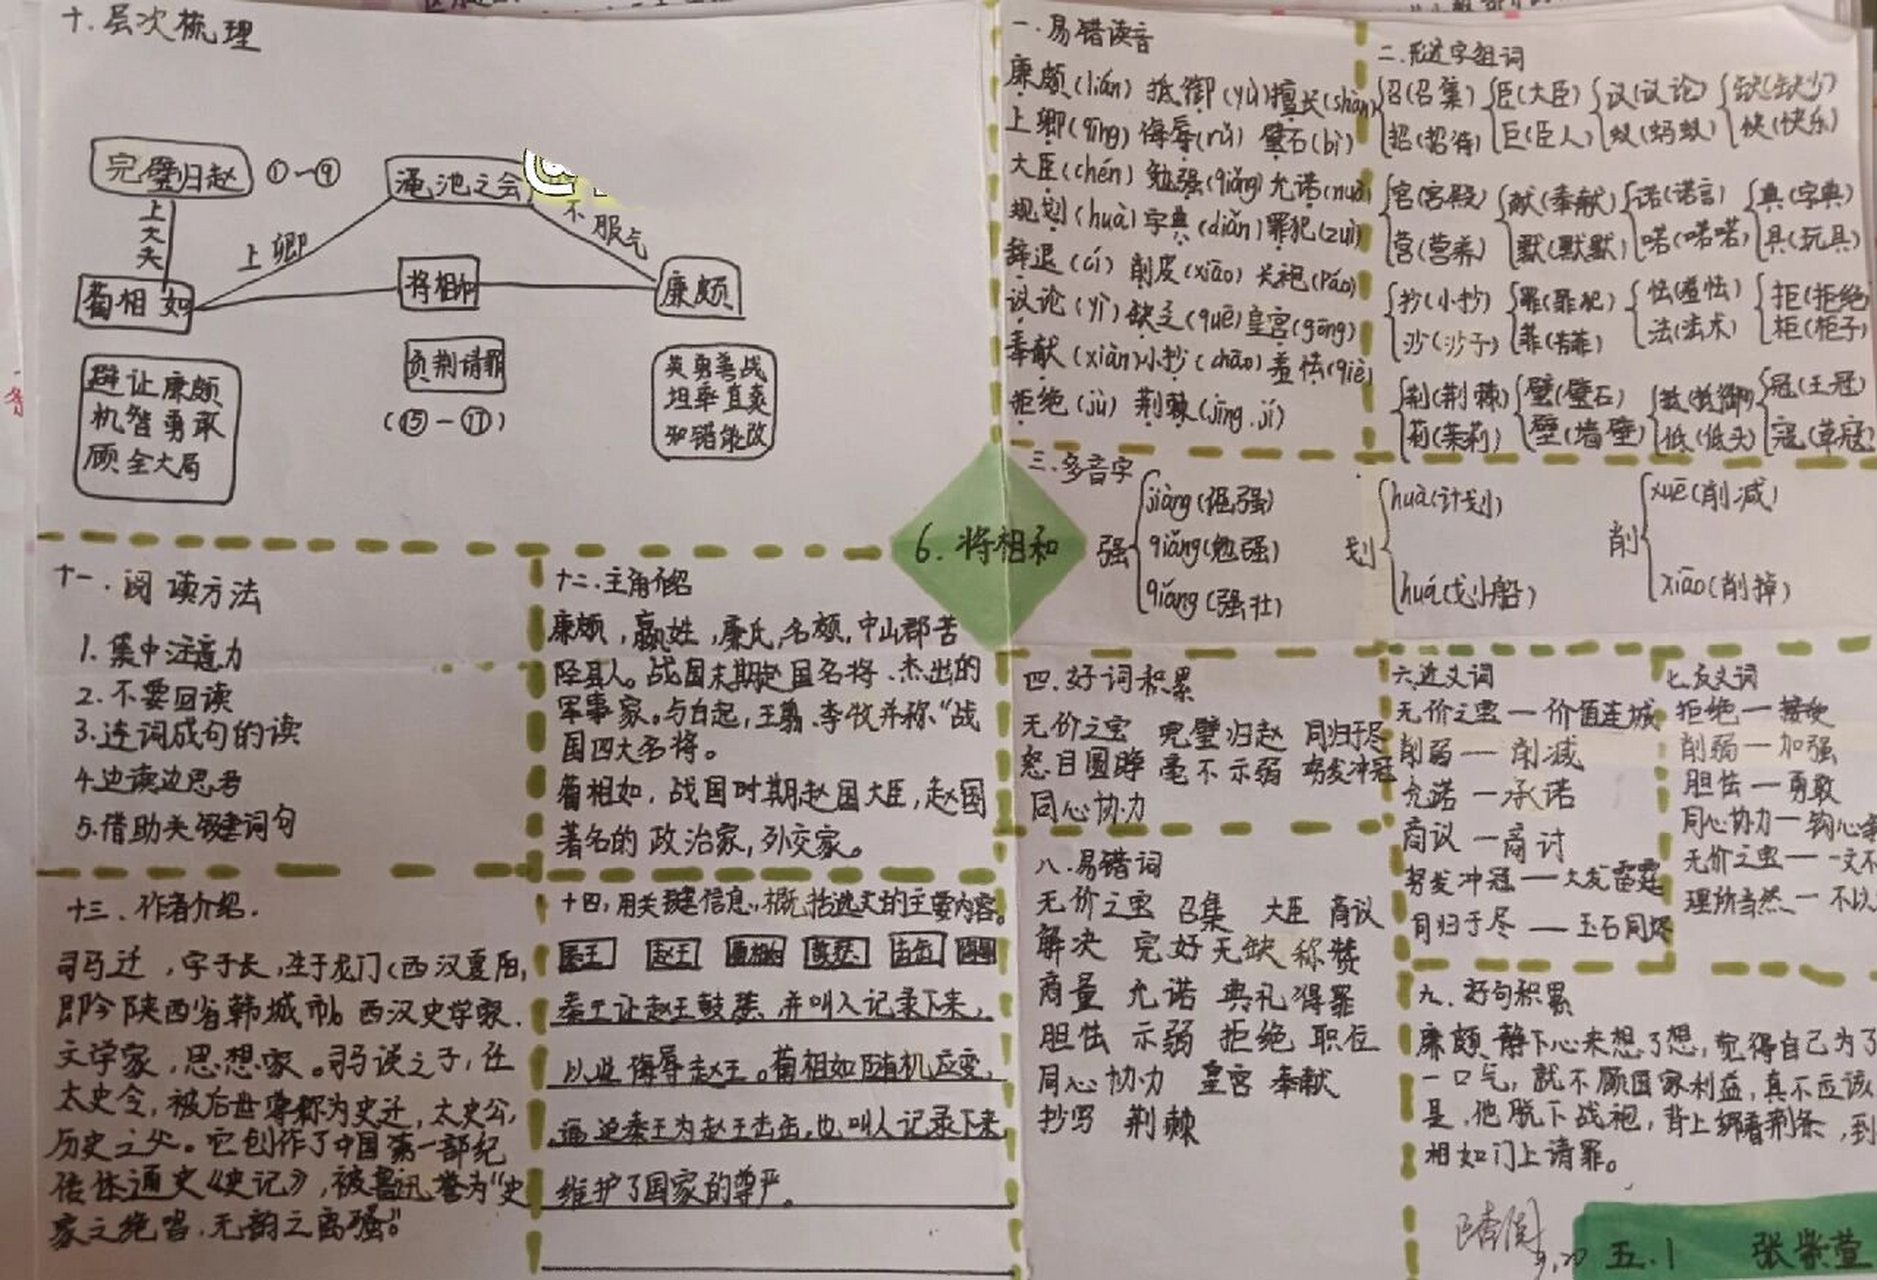 十.层次梳理
完璧归赵 ①-⑨
渑池之会
上大夫
上卿
不服气
蔺相如
将相和
廉颇
避让廉颇
机智勇敢
顾全大局
负荆请罪
(⑮-⑰)
英勇善战
坦率直爽
知错能改
6.将相和
一.易错读音
廉颇(lián) 抵御(yù)擅长(shàn)
上卿(qīng) 侮辱(rǔ) 璧石(bì)
大臣(chén) 勉强(qiǎng)允诺(nuò)
规划(huà)字典(diǎn)罪犯(zuì)
辞退(cí) 削皮(xiāo) 长袍(páo)
议论(yì)缺乏(quē)皇宫(gōng)
奉献(xiàn)小抄(chāo)羞怯(qiè)
拒绝(jù) 荆棘(jīng.jí)
二.形近字组词
召(召集) 臣(大臣) 议(议论) 缺(缺少)
招(招待) 巨(臣人) 蚁(蚂蚁) 快(快乐)
宫(宫殿) 献(奉献) 诺(诺言) 典(字典)
营(营养) 默(默默) 喏(喏喏) 具(玩具)
抄(小抄) 罪(罪犯) 怯(羞怯) 拒(拒绝
沙(沙子) 菲(芳菲) 法(法术) 柜(柜子)
荆(荆棘) 璧(璧石) 抵(抵御) 冠(王冠)
莉(茉莉) 壁(墙壁) 低(低头) 寇(草寇)
三.多音字
强 jiàng(倔强)
qiǎng(勉强)
qiáng(强壮)
划 huà(计划)
huá(划小船)
削 xuē(削减)
xiāo(削掉)
四.好词积累
无价之宝 完璧归赵 同归于尽
怒目圆睁 毫不示弱 怒发冲冠
同心协力
六近义词
无价之宝—价值连城
削弱—削减
允诺—承诺
商议—商讨
怒发冲冠—大发雷霆
同归于尽—玉石同烬
七.反义词
拒绝—接受
削弱—加强
胆怯—勇敢
同心协力—钩心
无价之宝—一文不
理所当然—不以
八.易错词
无价之宝 召集 大臣 商议
解决 完好无缺 称赞
商量 允诺 典礼 得罪
胆怯 示弱 拒绝 职位
同心协力 皇宫 奉献
抄写 荆棘
九.好句积累
廉颇静下心来想了想,觉得自己为了
一口气,就不顾国家利益,真不应该
是,他脱下战袍,背上绑着荆条,到
相如门上请罪。
十一.阅读方法
1.集中注意力
2.不要回读
3.连词成句的读
4.边读边思考
5.借助关键词句
十二.主角介绍
廉颇,嬴姓,廉氏,名颇,中山郡苦
陉县人。战国末期赵国名将、杰出的
军事家。与白起,王翦、李牧并称“战
国四大名将。
蔺相如,战国时期赵国大臣,赵国
著名的政治家,外交家。
十三.作者介绍.
司马迁,字子长,生于龙门(西汉夏阳,
即今陕西省韩城市)。西汉史学家.
文学家,思想家。司马谈之子,任
太史令,被后世尊称为史迁,太史公,
历史之父。它创作了中国第一部纪
传体通史《史记》,被鲁迅誉为“史
家之绝唱.无韵之离骚”。
十四,用关键信息,概括选文的主要内容。
秦王 赵王 蔺相如 鼓瑟 击缶
秦王让赵王鼓瑟,并叫人记录下来,
以此侮辱赵王。蔺相如随机应变,
逼迫秦王为赵王击缶,也叫人记录下来,
维护了国家的尊严。
9.20 五.1 张紫萱